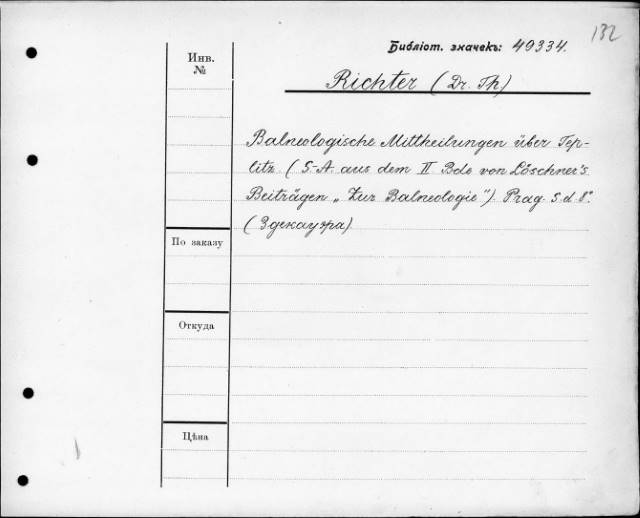 132
Библіот. значекъ: 49334.
Инв.
№
Richter (Dr. Th)
Balneologische Mittheilungen über Tep-
litz. (S-A. aus dem II Bde von Löschner's
Beiträgen „Zur Balneologie"). Prag. s.d. 8°.
(Здекауэра)
По заказу
Откуда
Цѣна